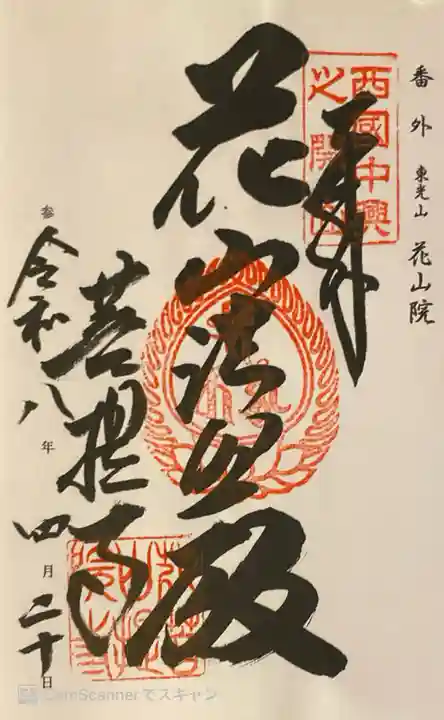 番外 東光山 花山院
西國中興
之開山
奉拝
花山法皇殿
菩提寺
参 令和八年四月二十日
CamScannerでスキャン